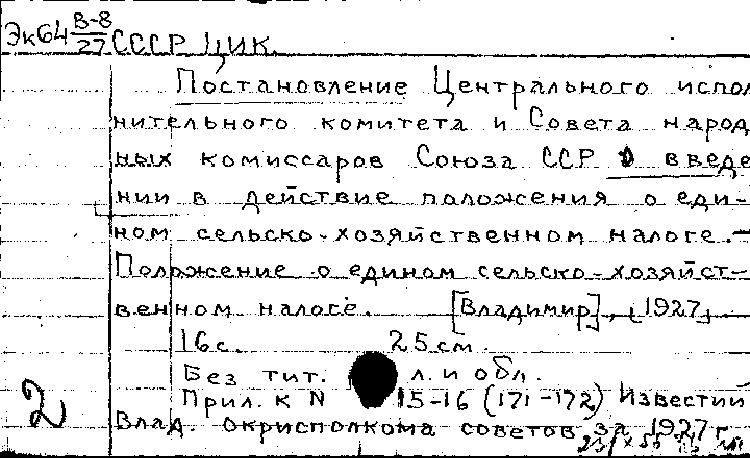 Эк64 В-8/27 СССР ЦИК.
Постановление Центрального испол
нительного комитета и Совета народ
ных комиссаров Союза ССР о введе
нии в действие положения о еди-
ном сельско-хозяйственном налоге.—
Положение о едином сельско-хозяйст-
венном налоге. [Владимир], [1927]
16 с. 25 см.
Без тит. л. и обл.
Прил. к N 15-16 (171-172) Известий
2 Влад. окрисполкома советов за 1927 г.